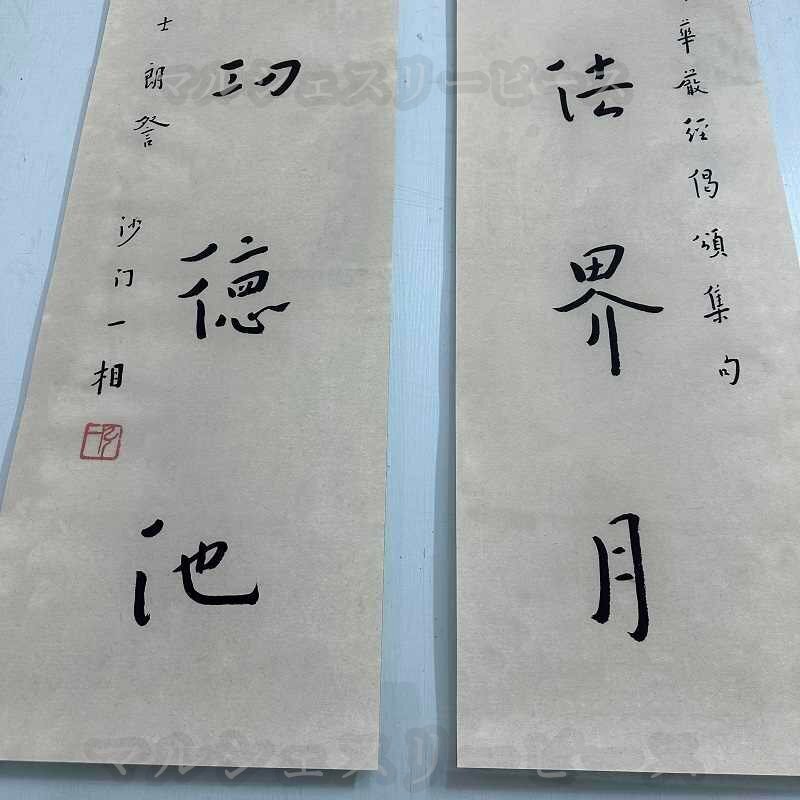 マルシェスリーピース
華嚴經偈頌集句
法界月
功德池
士朗詧
沙门一相
マルシェスリーピース